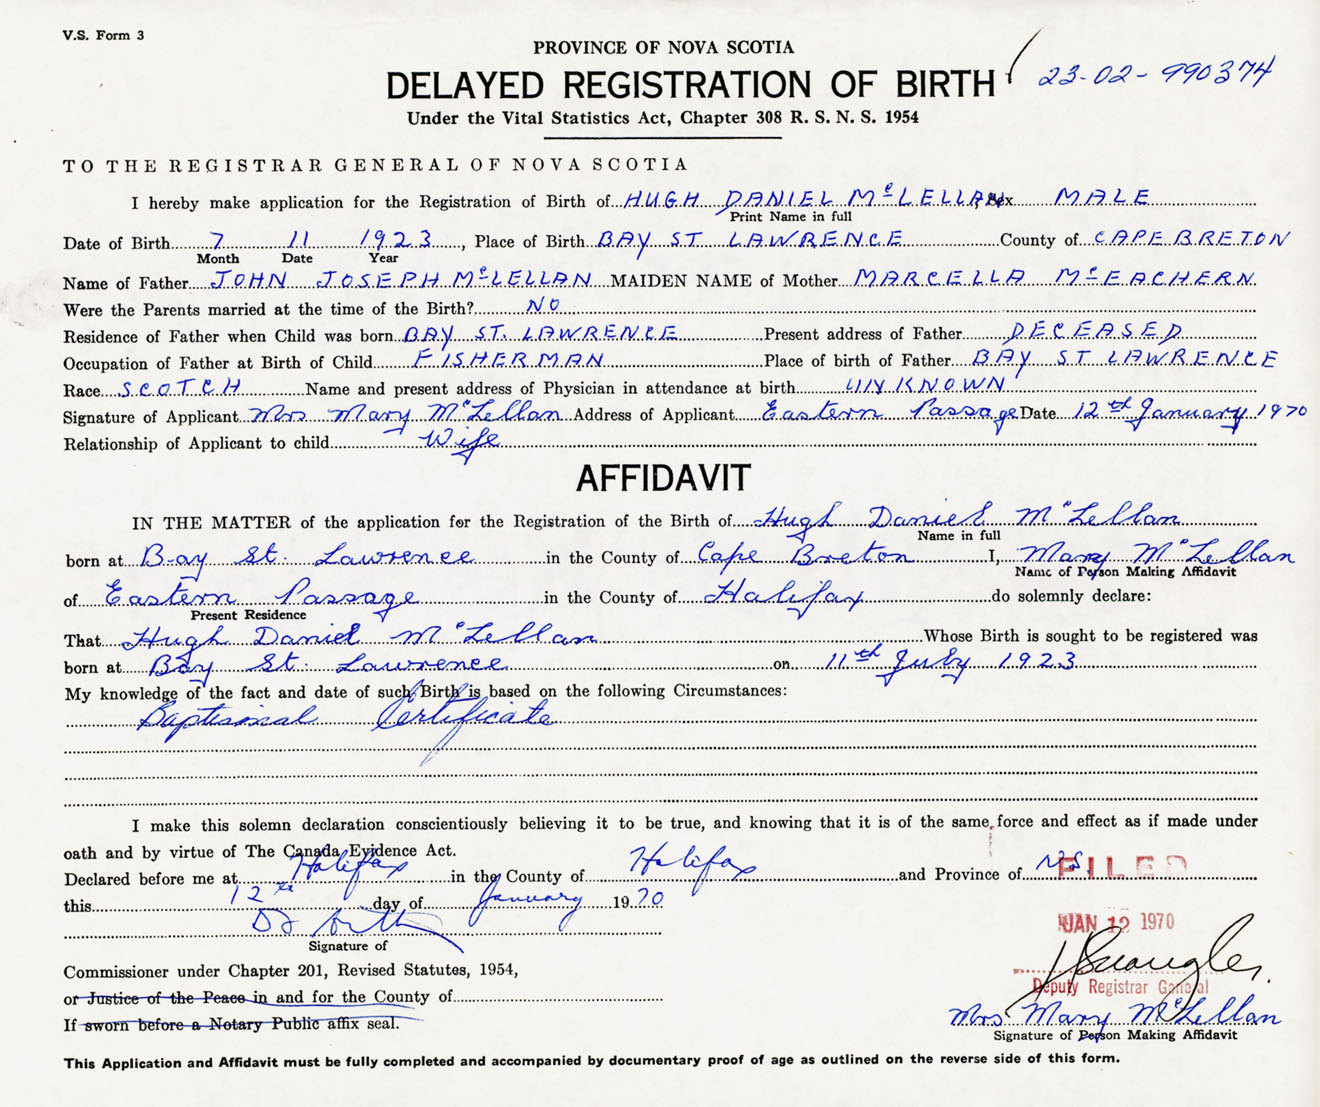 V.S. Form 3
PROVINCE OF NOVA SCOTIA
DELAYED REGISTRATION OF BIRTH 23-02-990374
Under the Vital Statistics Act, Chapter 308 R. S. N. S. 1954
TO THE REGISTRAR GENERAL OF NOVA SCOTIA
I hereby make application for the Registration of Birth of HUGH DANIEL McLELLAN, Sex MALE
Print Name in full
Date of Birth 7 11 1923, Place of Birth BAY ST LAWRENCE County of CAPE BRETON
Month Date Year
Name of Father JOHN JOSEPH McLELLAN MAIDEN NAME of Mother MARCELLA McEACHERN
Were the Parents married at the time of the Birth? NO
Residence of Father when Child was born BAY ST. LAWRENCE Present address of Father DECEASED
Occupation of Father at Birth of Child FISHERMAN Place of birth of Father BAY ST LAWRENCE
Race SCOTCH Name and present address of Physician in attendance at birth UNKNOWN
Signature of Applicant Mrs Mary McLellan Address of Applicant Eastern Passage Date 12th January 1970
Relationship of Applicant to child Wife
AFFIDAVIT
IN THE MATTER of the application for the Registration of the Birth of Hugh Daniel McLellan
Name in full
born at Bay St. Lawrence in the County of Cape Breton I, Mary McLellan
Name of Person Making Affidavit
of Eastern Passage in the County of Halifax do solemnly declare:
Present Residence
That Hugh Daniel McLellan Whose Birth is sought to be registered was
born at Bay St. Lawrence on 11th July 1923
My knowledge of the fact and date of such Birth is based on the following Circumstances:
Baptismal Certificate
I make this solemn declaration conscientiously believing it to be true, and knowing that it is of the same force and effect as if made under
oath and by virtue of The Canada Evidence Act.
Declared before me at Halifax in the County of Halifax and Province of N.S. FILED
this 12th day of January 1970
JAN 12 1970
Signature of
Commissioner under Chapter 201, Revised Statutes, 1954,
or Justice of the Peace in and for the County of
Deputy Registrar General
If sworn before a Notary Public affix seal.
Mrs Mary McLellan
Signature of Person Making Affidavit
This Application and Affidavit must be fully completed and accompanied by documentary proof of age as outlined on the reverse side of this form.